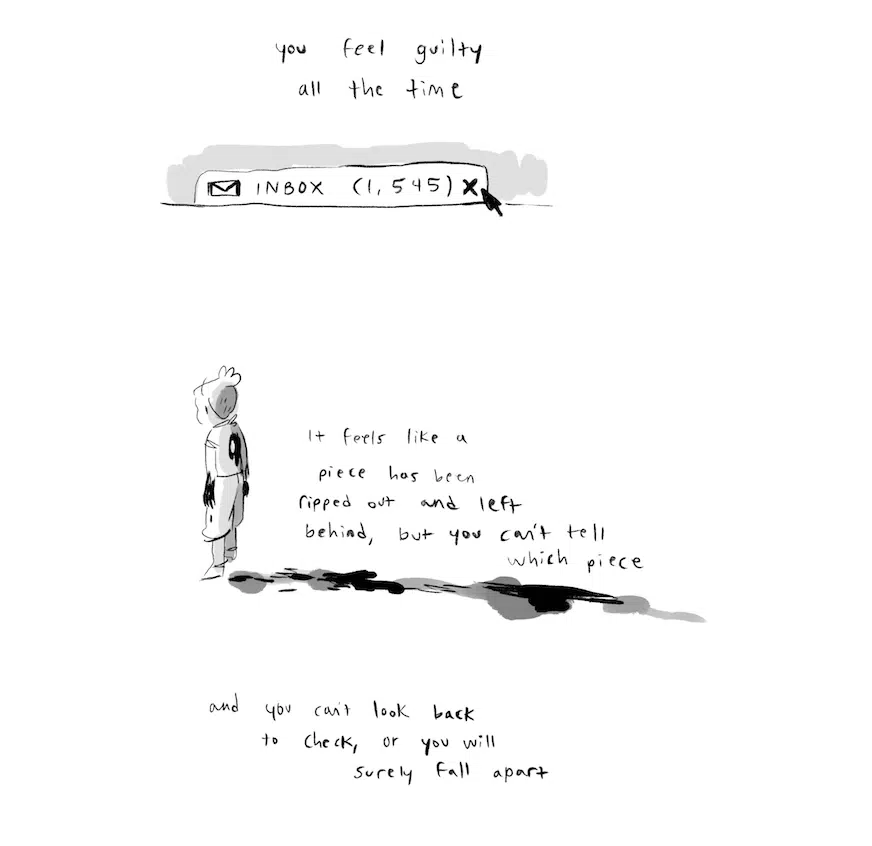 you feel guilty
all the time
INBOX (1,545) X
It feels like a
piece has been
ripped out and left
behind, but you can't tell
which piece
and you can't look back
to check, or you will
surely fall apart